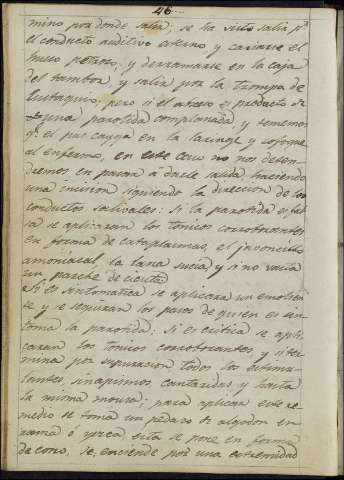 46
mino por donde salir, se ha visto salir p.r
el conducto auditivo externo y cariarse el
hueso petroso, y derramarse en la caja
del tambor, y salir por la trompa de
Eustaquio; pero si el absceso es producto de
una parotida complonada, y tememos
q.e el pus cayga en la laringe y sofoque
al enfermo, en este caso no nos deten-
dremos en pasar à darle salida haciendo
una incision siguiendo la direccion de los
conductos salivales: Si la parotida es fal
sa se aplicaran los tonicos corroborantes
en forma de cataplasmas, el javoncillo
amoniacal la lana sucia, y si no basta
un parche de cicuta:
Si es sintomatica se aplicara un emolien
te y se seguiran los pasos de quien es sin-
toma la parotida: Si es critica se apli-
caran los tonicos corroborantes y si ter-
mina por supuracion todos los estimu-
lantes, sinapismos, cantaridas y hasta
la misma moxa; para aplicar este re-
medio se toma un pedazo de algodon en
rama ó yesca esta se pone en forma
de cono, se enciende por una extremidad